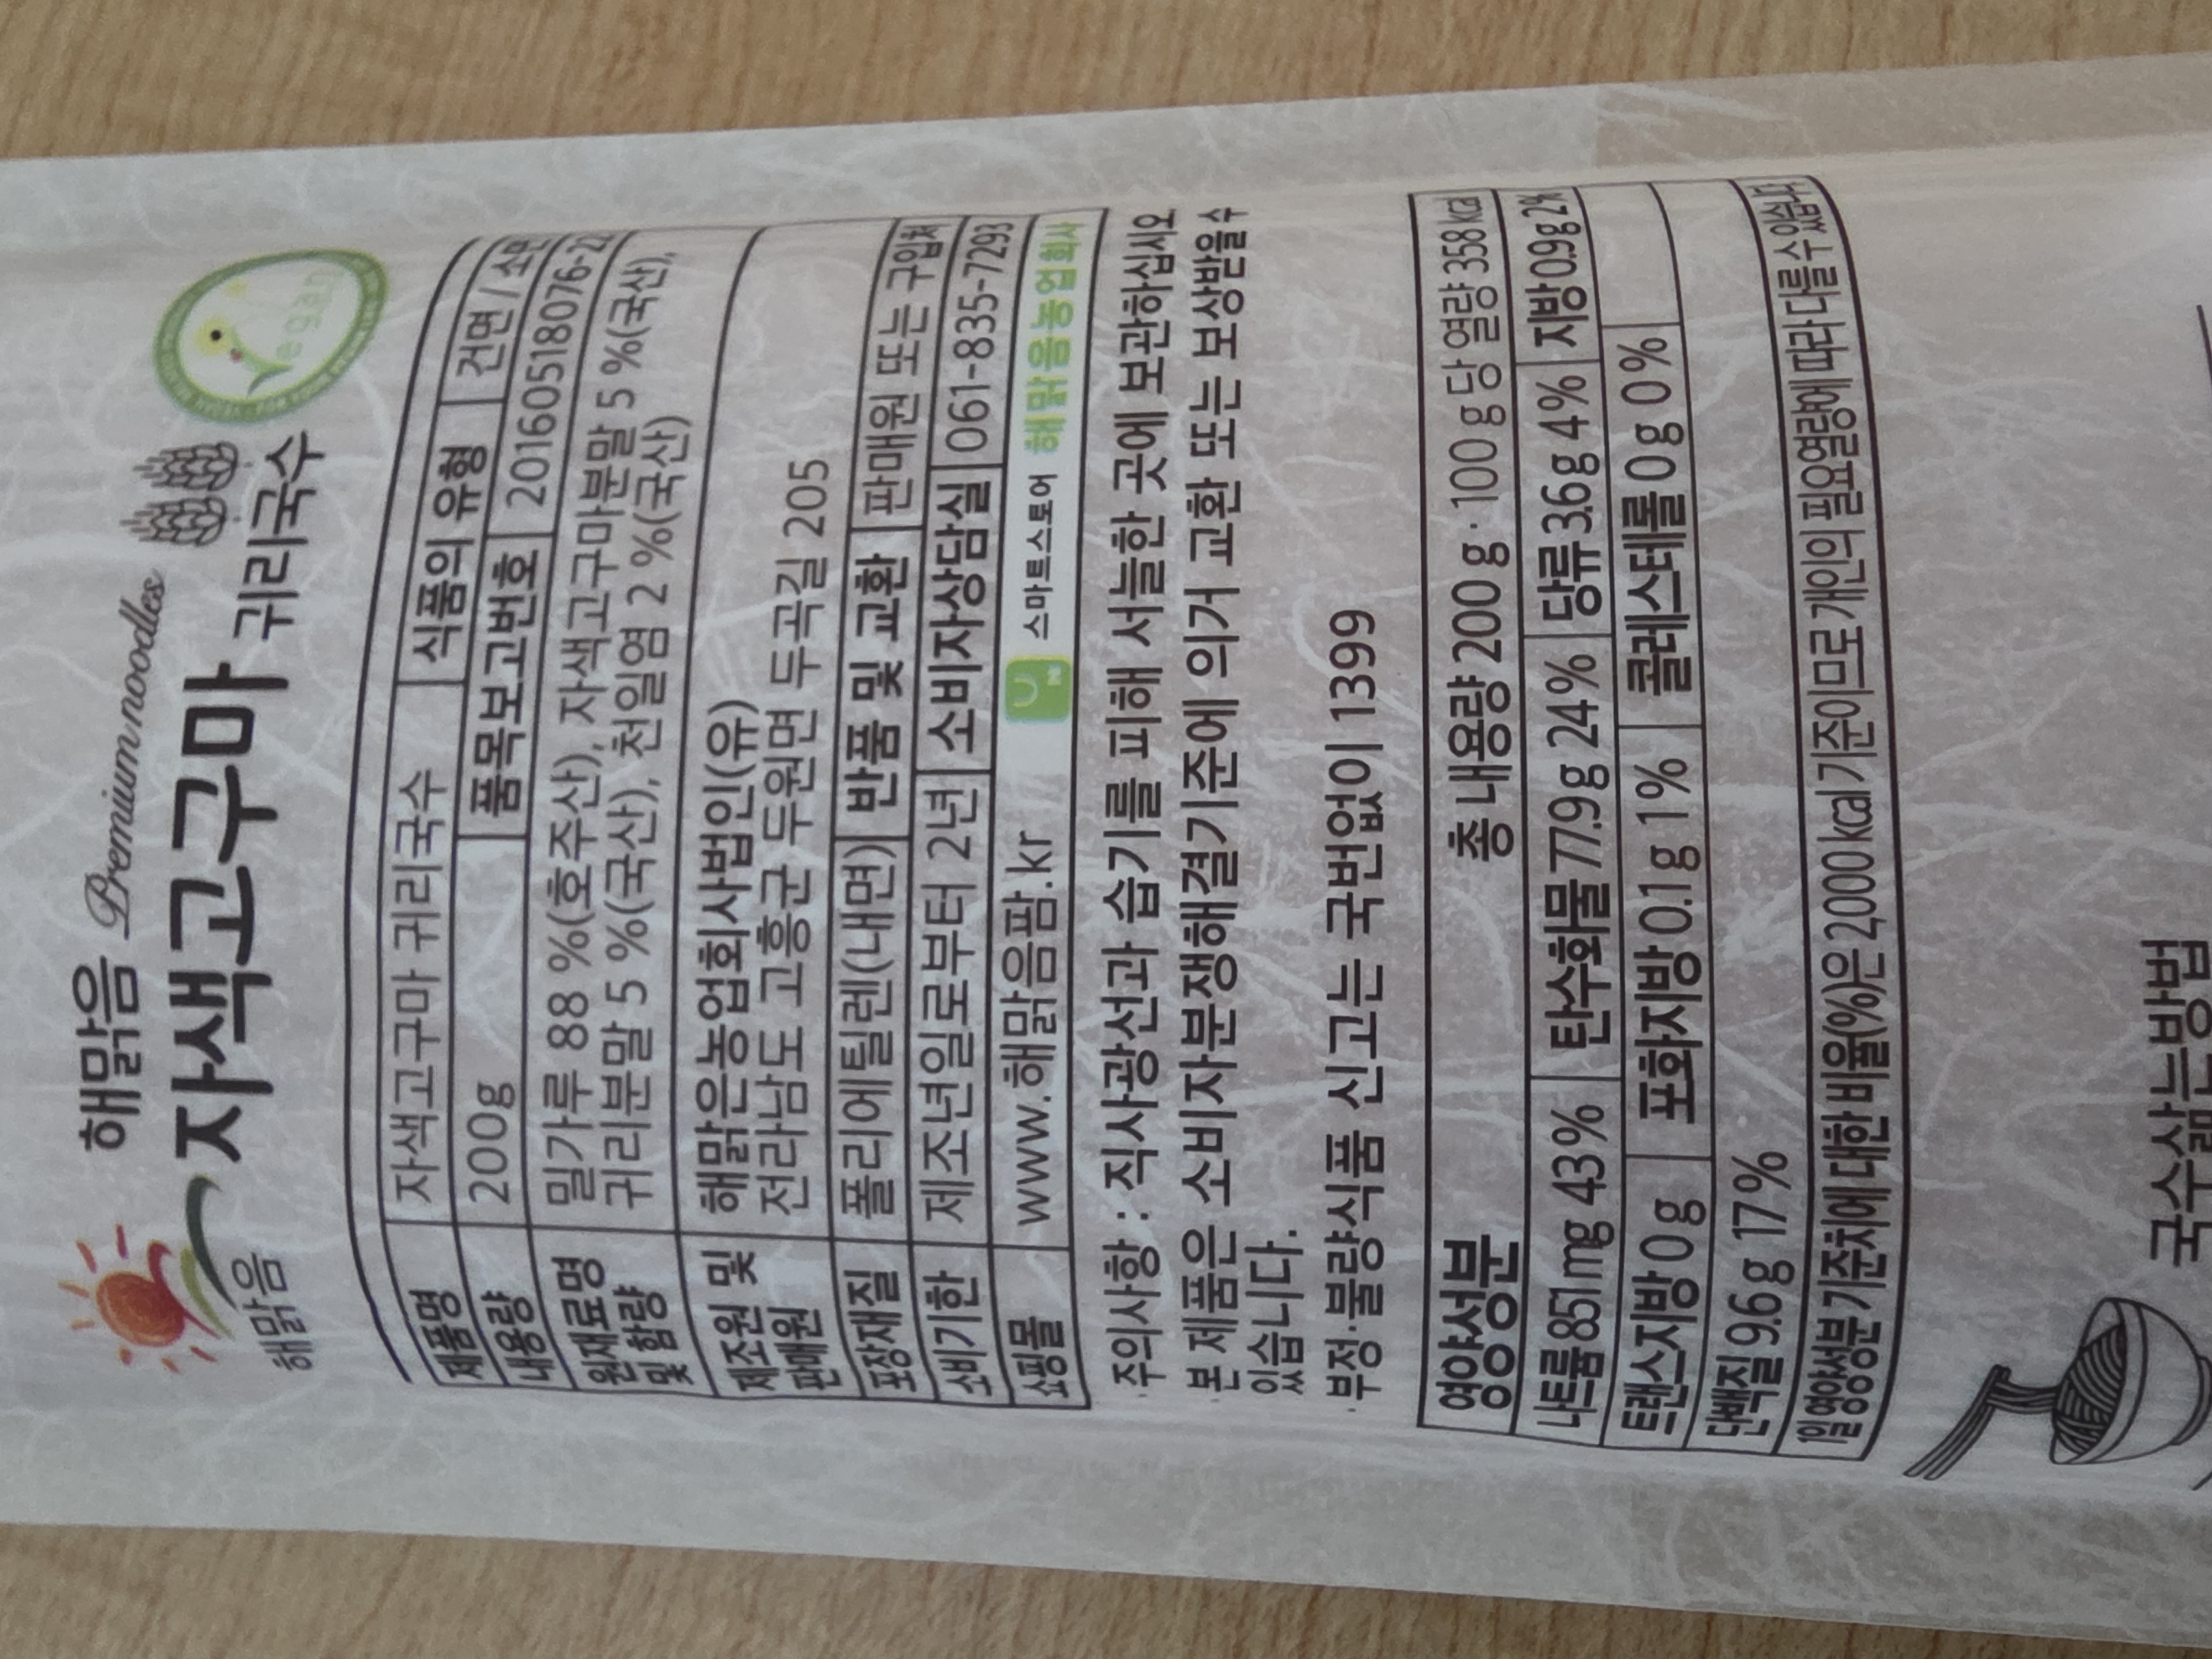 해맑음 Premium noodles
자색고구마 귀리국수
해맑음
egan
제품명 자색고구마 귀리국수 식품의 유형 건면 / 소면
내용량 200g 품목보고번호
원재료명 및 함량 밀가루 88 %(호주산), 자색고구마분말 5 %(국산),
귀리분말 5 %(국산), 천일염 2 %(국산)
제조원 및 판매원 해맑은농업회사법인(유)
전라남도 고흥군 두원면 두곡길 205
포장재질 폴리에틸렌(내면) 반품 및 교환 판매원 또는 구입처
소비기한 제조년일로부터 2년 소비자상담실 061-835-7293
쇼핑몰 www.해맑음팜.kr 스마트스토어 해맑음농업회사
·주의사항 : 직사광선과 습기를 피해 서늘한 곳에 보관하십시오
·본 제품은 소비자분쟁해결기준에 의거 교환 또는 보상받을 수
있습니다.
·부정·불량식품 신고는 국번없이 1399
영양성분 총 내용량 200 g · 100 g당 열량 358 kcal
나트륨 851 mg 43% 탄수화물 77.9 g 24% 당류 3.6 g 4% 지방 0.9 g 2%
트랜스지방 0 g 포화지방 0.1 g 1% 콜레스테롤 0 g 0%
단백질 9.6 g 17%
1일 영양성분 기준치에 대한 비율(%)은 2,000 kcal 기준이므로 개인의 필요열량에 따라 다를 수 있습니다
국수삶는방법